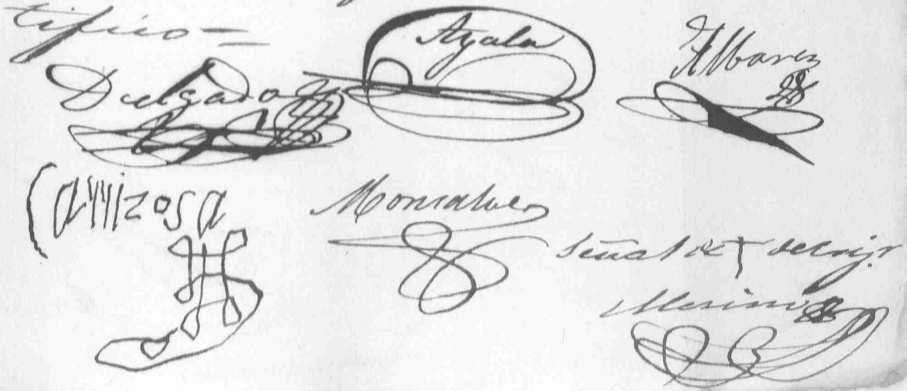 tifico =
Delgado Ayala Albarez
Carrizosa Monsalves
Señal de † del rej.r
Merino